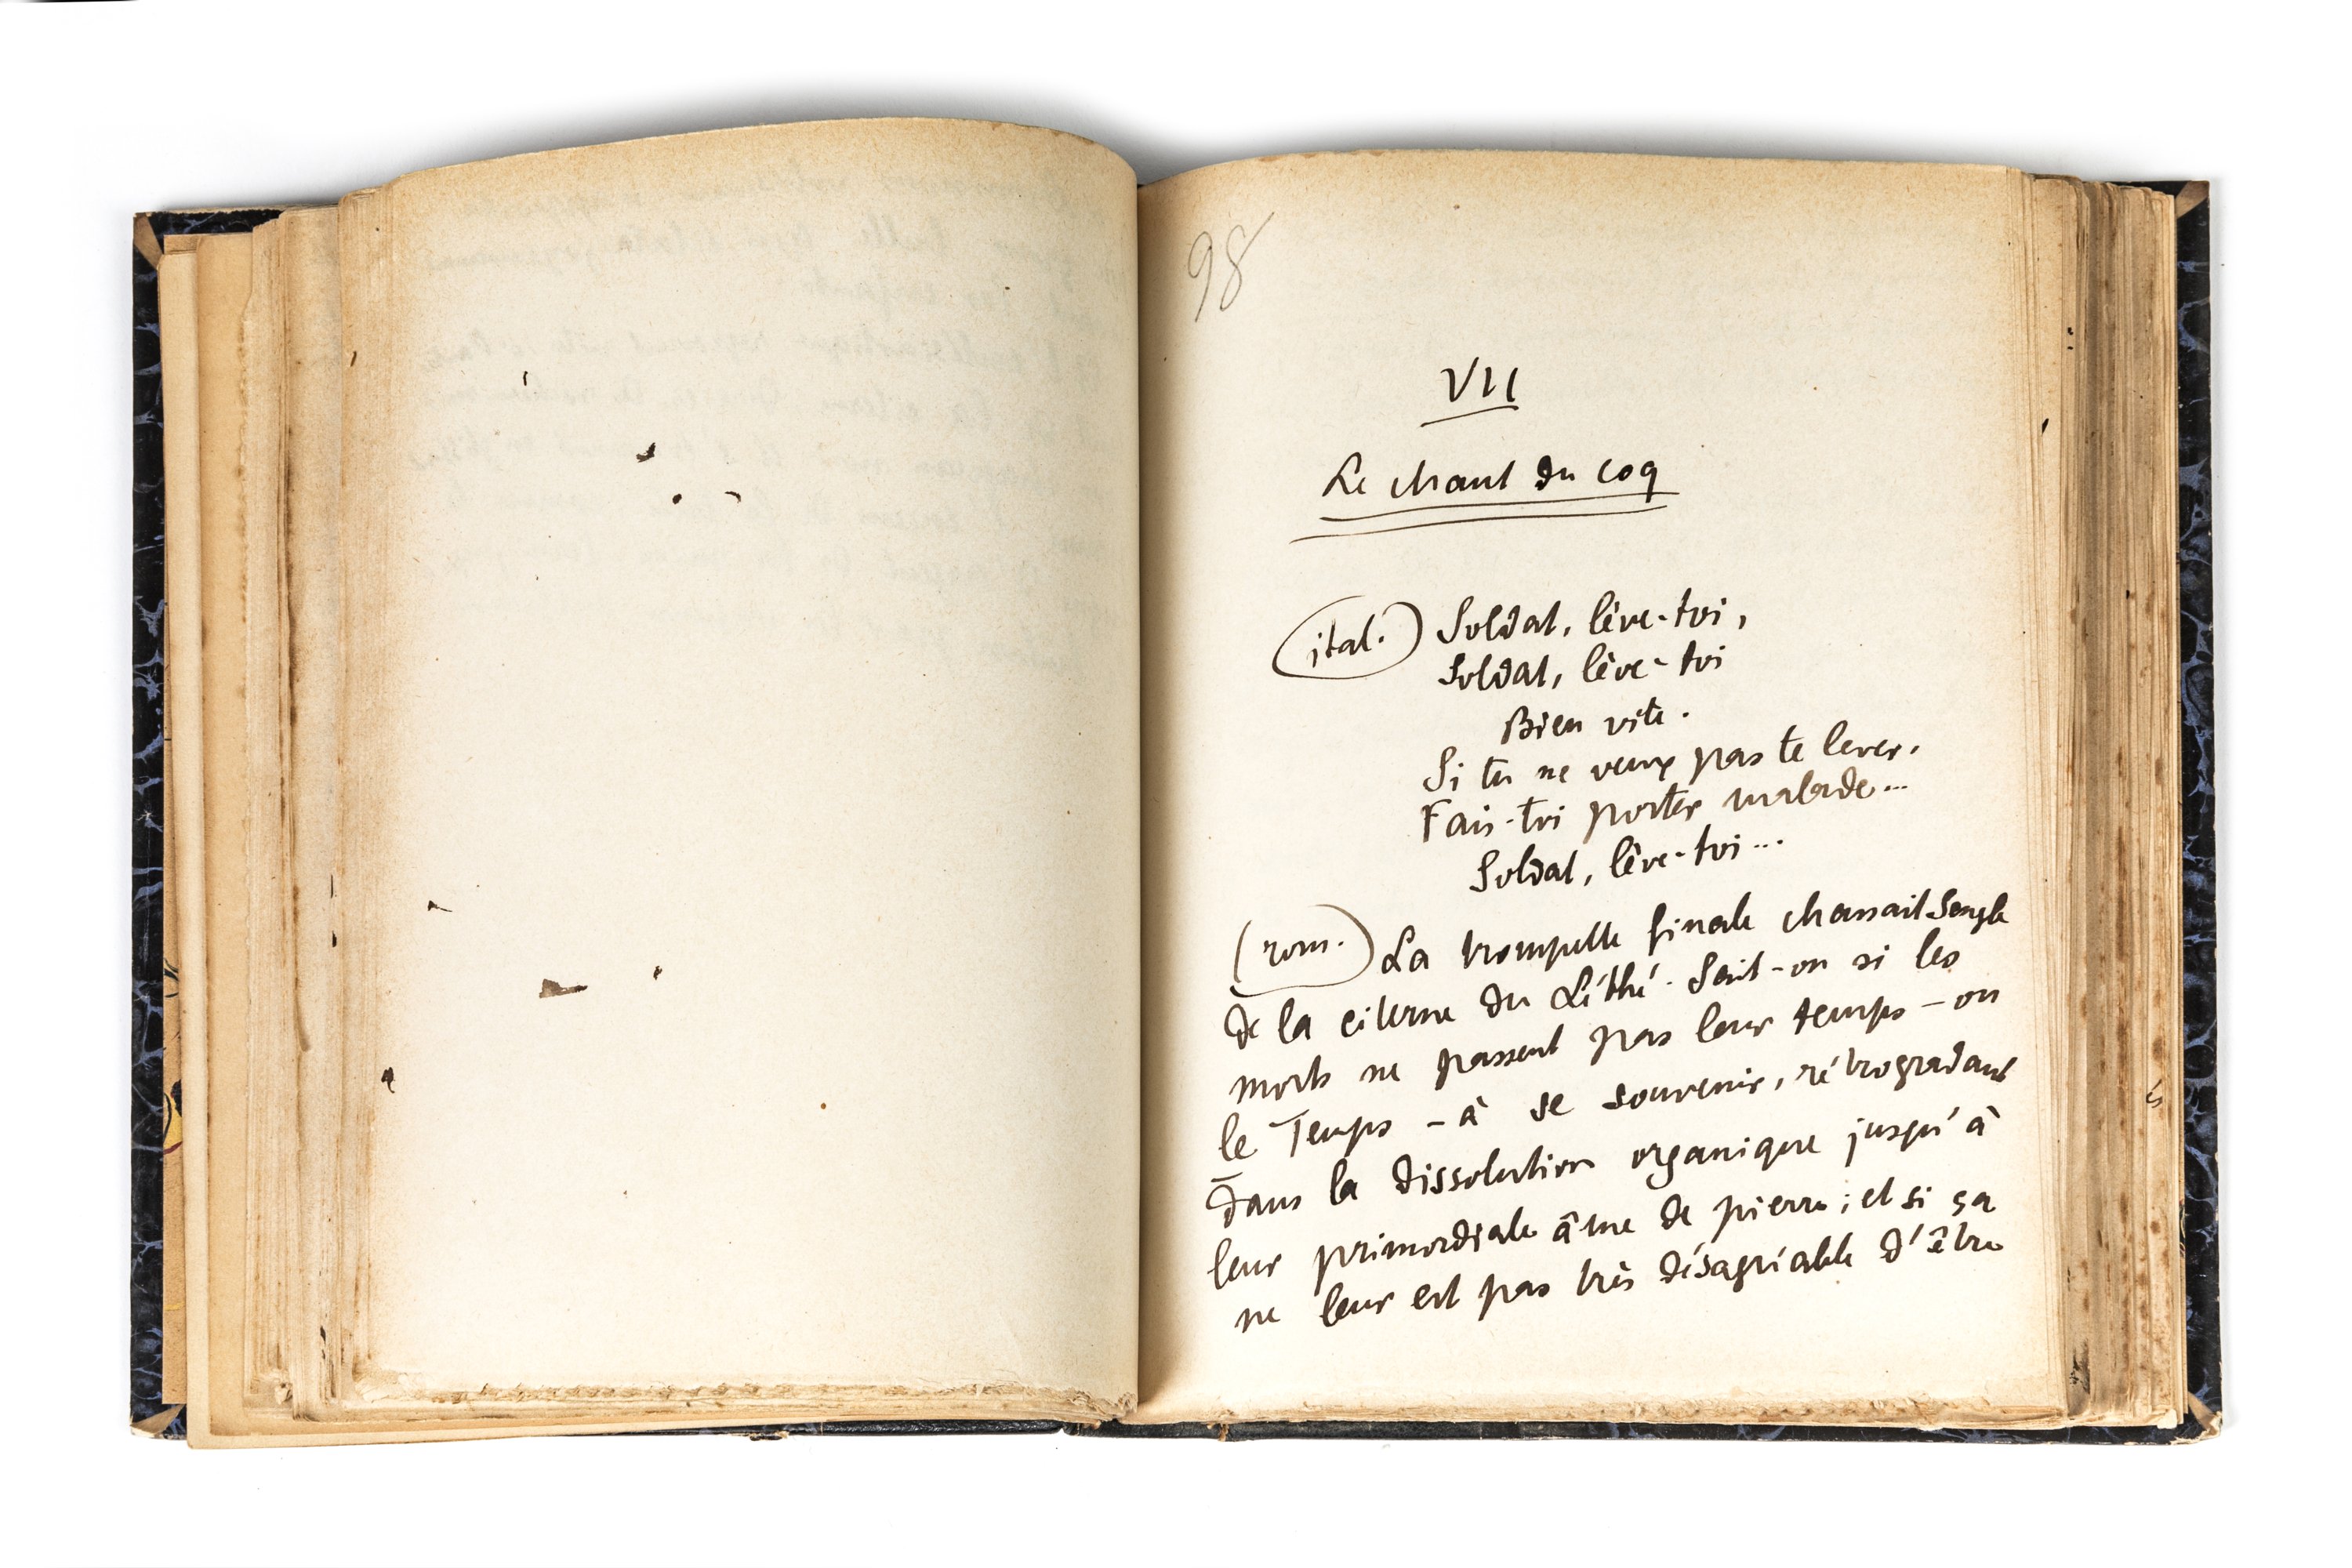 98
VII
Le chant du coq
(ital.) Soldat, lève-toi,
Soldat, lève-toi
Bien vite.
Si tu ne veux pas te lever,
Fais-toi porter malade...
Soldat, lève-toi...
(rom.) La trompette finale chassait Sengle
de la citerne du Léthé. Sait-on si les
morts ne passent pas leur temps – on
le Temps – à se souvenir, rétrogradant
dans la dissolution organique jusqu'à
leur primordiale âme de pierre ; et si ça
ne leur est pas très désagréable d'être